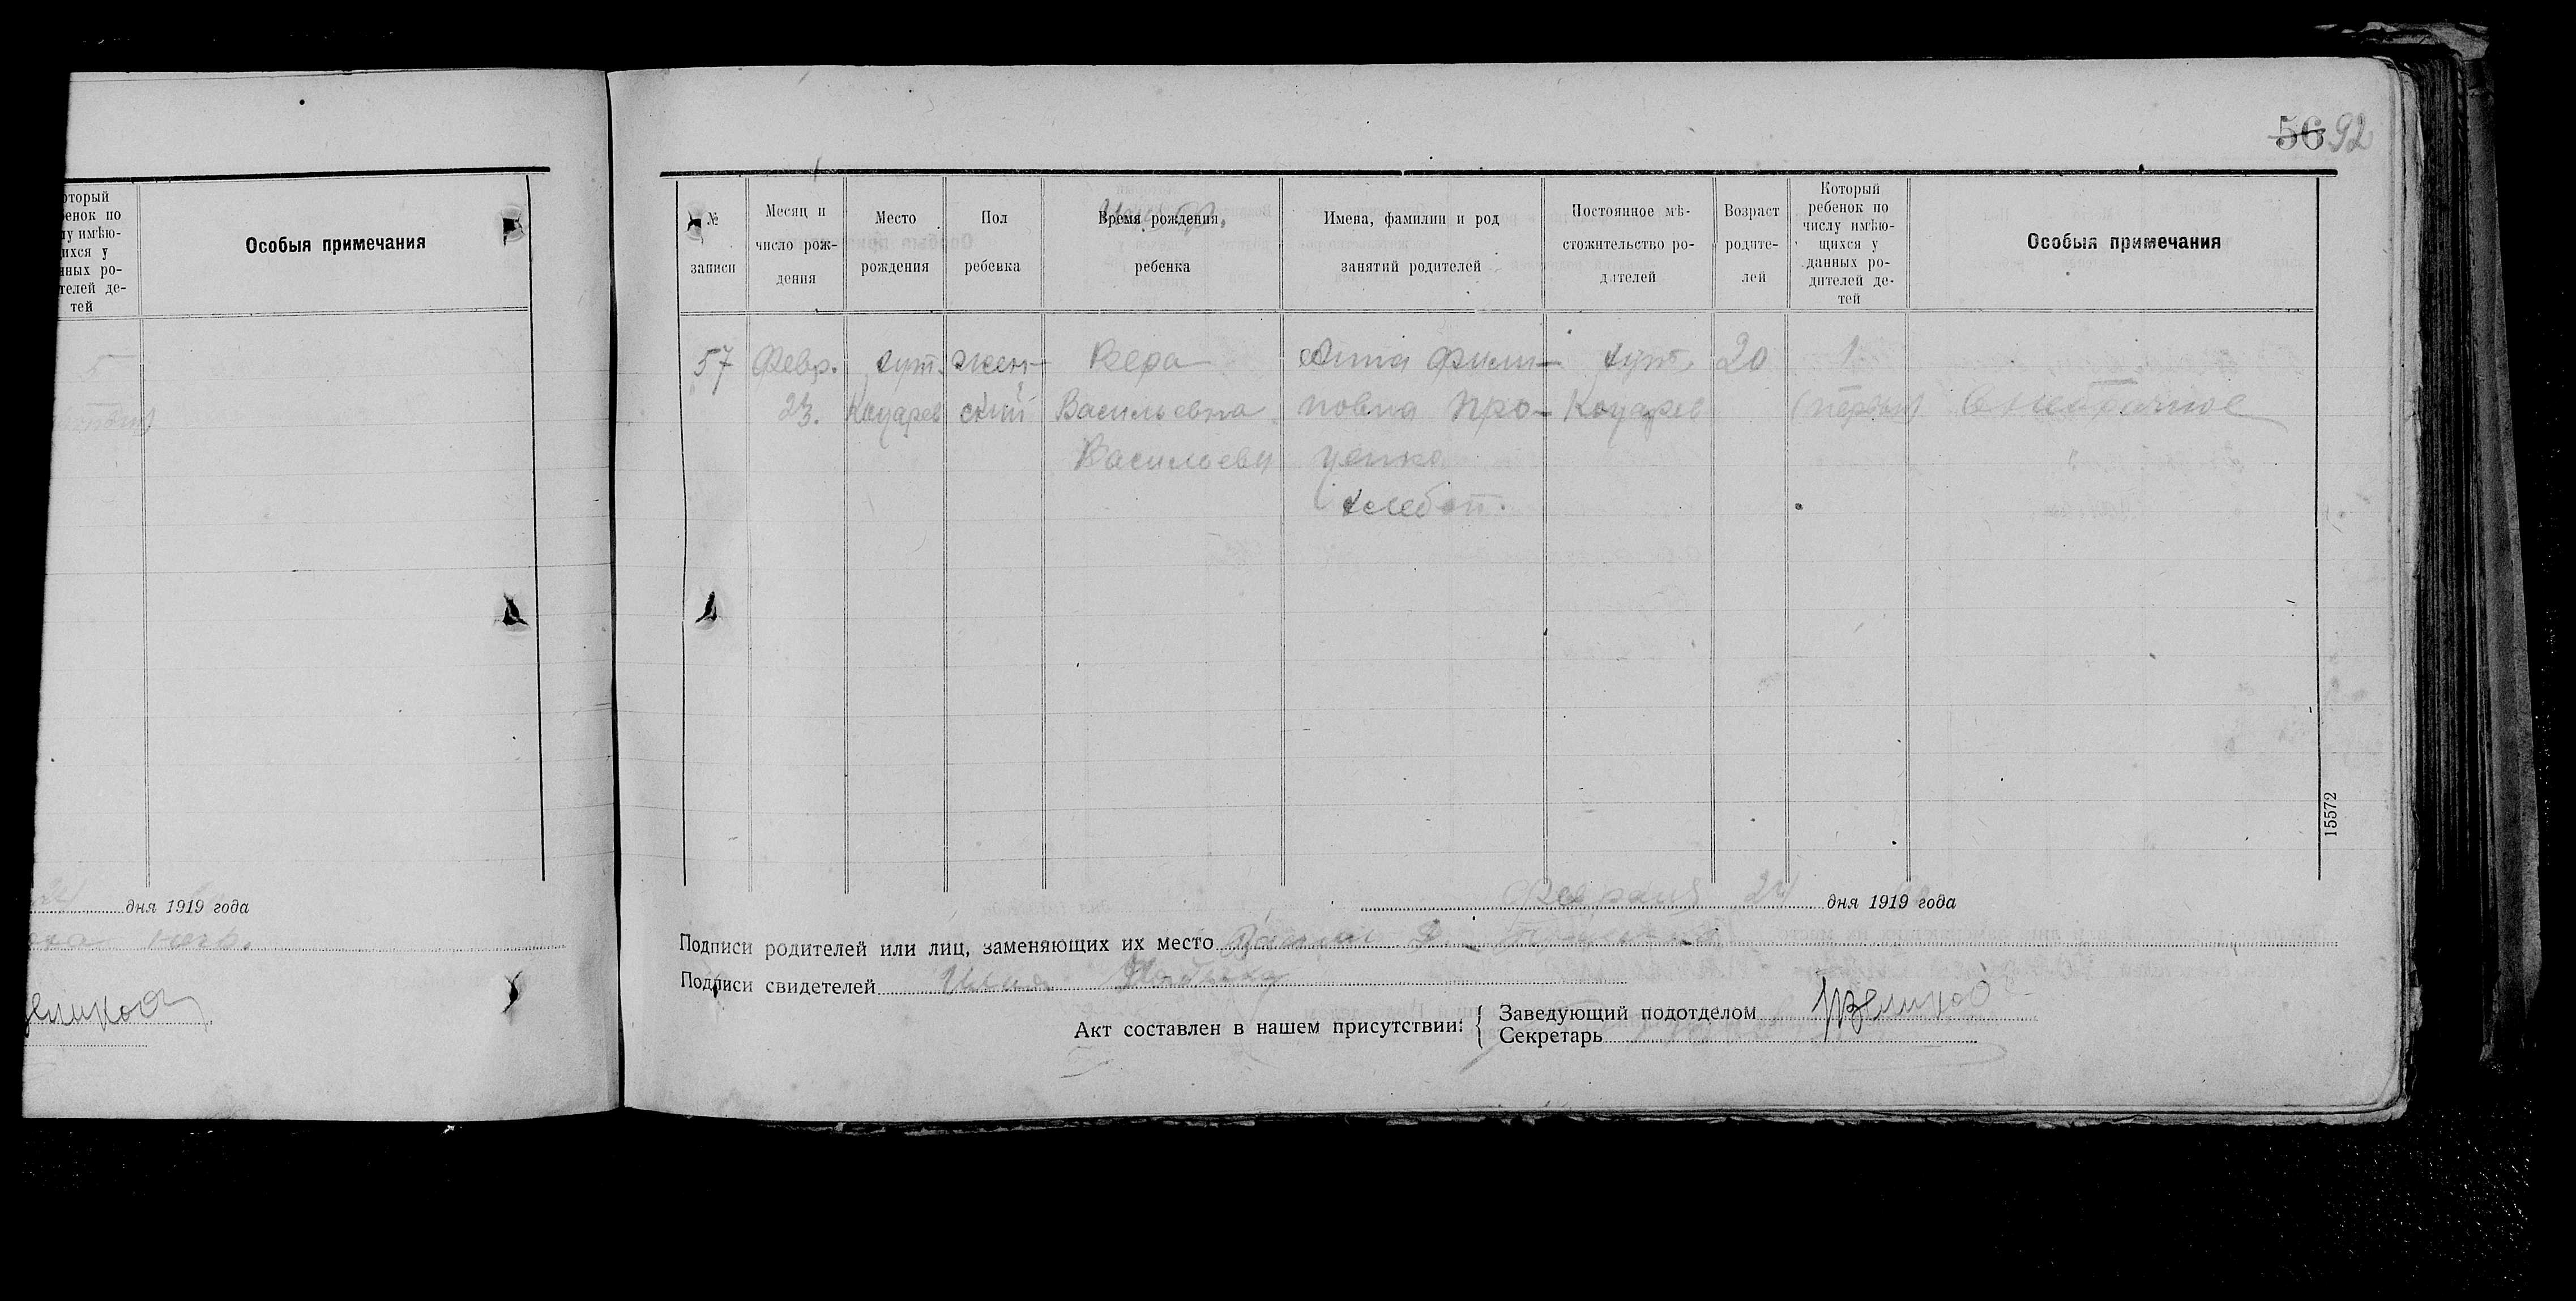 56 92
оторый
бенок по
лу имѣю-
щихся у
нных ро-
телей де-
тей
Особыя примечания
5
дня 1919 года
№
записи
Месяц и
число рож-
дения
Место
рождения
Пол
ребенка
Время рождения
ребенка
Имена, фамилии и род
занятий родителей
Постоянное мѣ-
стожительство ро-
дителей
Возраст
родите-
лей
Который
ребенок по
числу имѣю-
щихся у
данных ро-
дителей де-
тей
Особыя примечания
57 Февр. хут. жен- Вера Анна Фили- хут. 20 1
23. Коцарев ский Васильевна повна Про- Коцарев (первый) внебрачное
Васильева ценко
хлебоп.
15572
Февраля 24 дня 1919 года
Подписи родителей или лиц, заменяющих их место
Подписи свидетелей
Акт составлен в нашем присутствии: { Заведующий подотделом
Секретарь